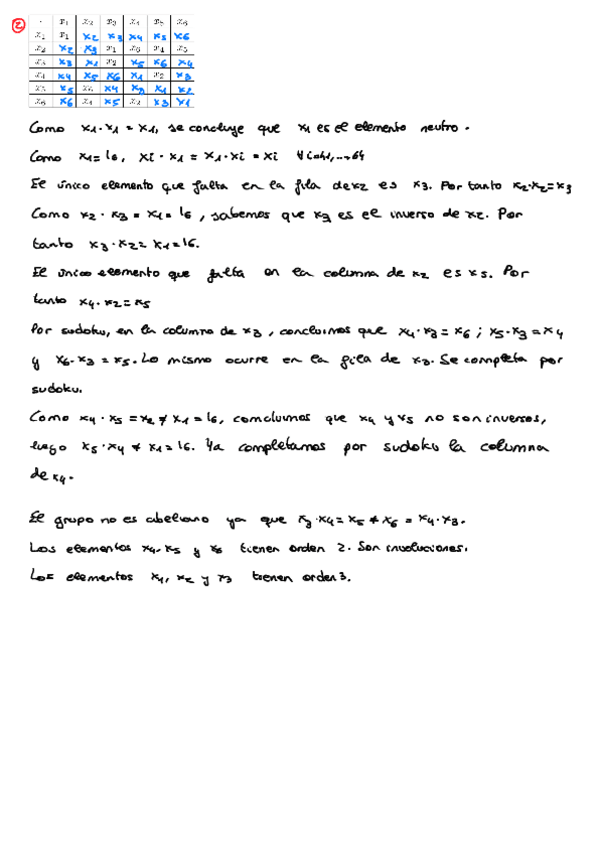 2
· x₁ x₂ x₃ x₄ x₅ x₆
x₁ x₁ x₂ x₃ x₄ x₅ x₆
x₂ x₂ x₃ x₁ x₆ x₄ x₅
x₃ x₃ x₁ x₂ x₅ x₆ x₄
x₄ x₄ x₅ x₆ x₁ x₂ x₃
x₅ x₅ x₆ x₄ x₃ x₁ x₂
x₆ x₆ x₄ x₅ x₂ x₃ x₁
Como x₁·x₁ = x₁, se concluye que x₁ es el elemento neutro.
Como x₁ = 1G, xi · x₁ = x₁·xi = xi ∀ i∈{1,...,6}
El único elemento que falta en la fila de x₂ es x₃. Por tanto x₂·x₂=x₃
Como x₂ · x₃ = x₁ = 1G, sabemos que x₃ es el inverso de x₂. Por
tanto x₃·x₂ = x₁ = 1G.
El único elemento que falta en la columna de x₂ es x₅. Por
tanto x₄·x₂=x₅
Por sudoku, en la columna de x₃, concluimos que x₄·x₃ = x₆ ; x₅·x₃ = x₄
y x₆·x₃ = x₅. Lo mismo ocurre en la fila de x₃. Se completa por
sudoku.
Como x₄·x₅ = x₂ ≠ x₁ = 1G, concluimos que x₄ y x₅ no son inversos,
luego x₅·x₄ ≠ x₁ = 1G. Ya completamos por sudoku la columna
de x₄.
El grupo no es abeliano ya que x₃·x₄ = x₅ ≠ x₆ = x₄·x₃.
Los elementos x₄, x₅ y x₆ tienen orden 2. Son involuciones.
Los elementos x₁, x₂ y x₃ tienen orden 3.